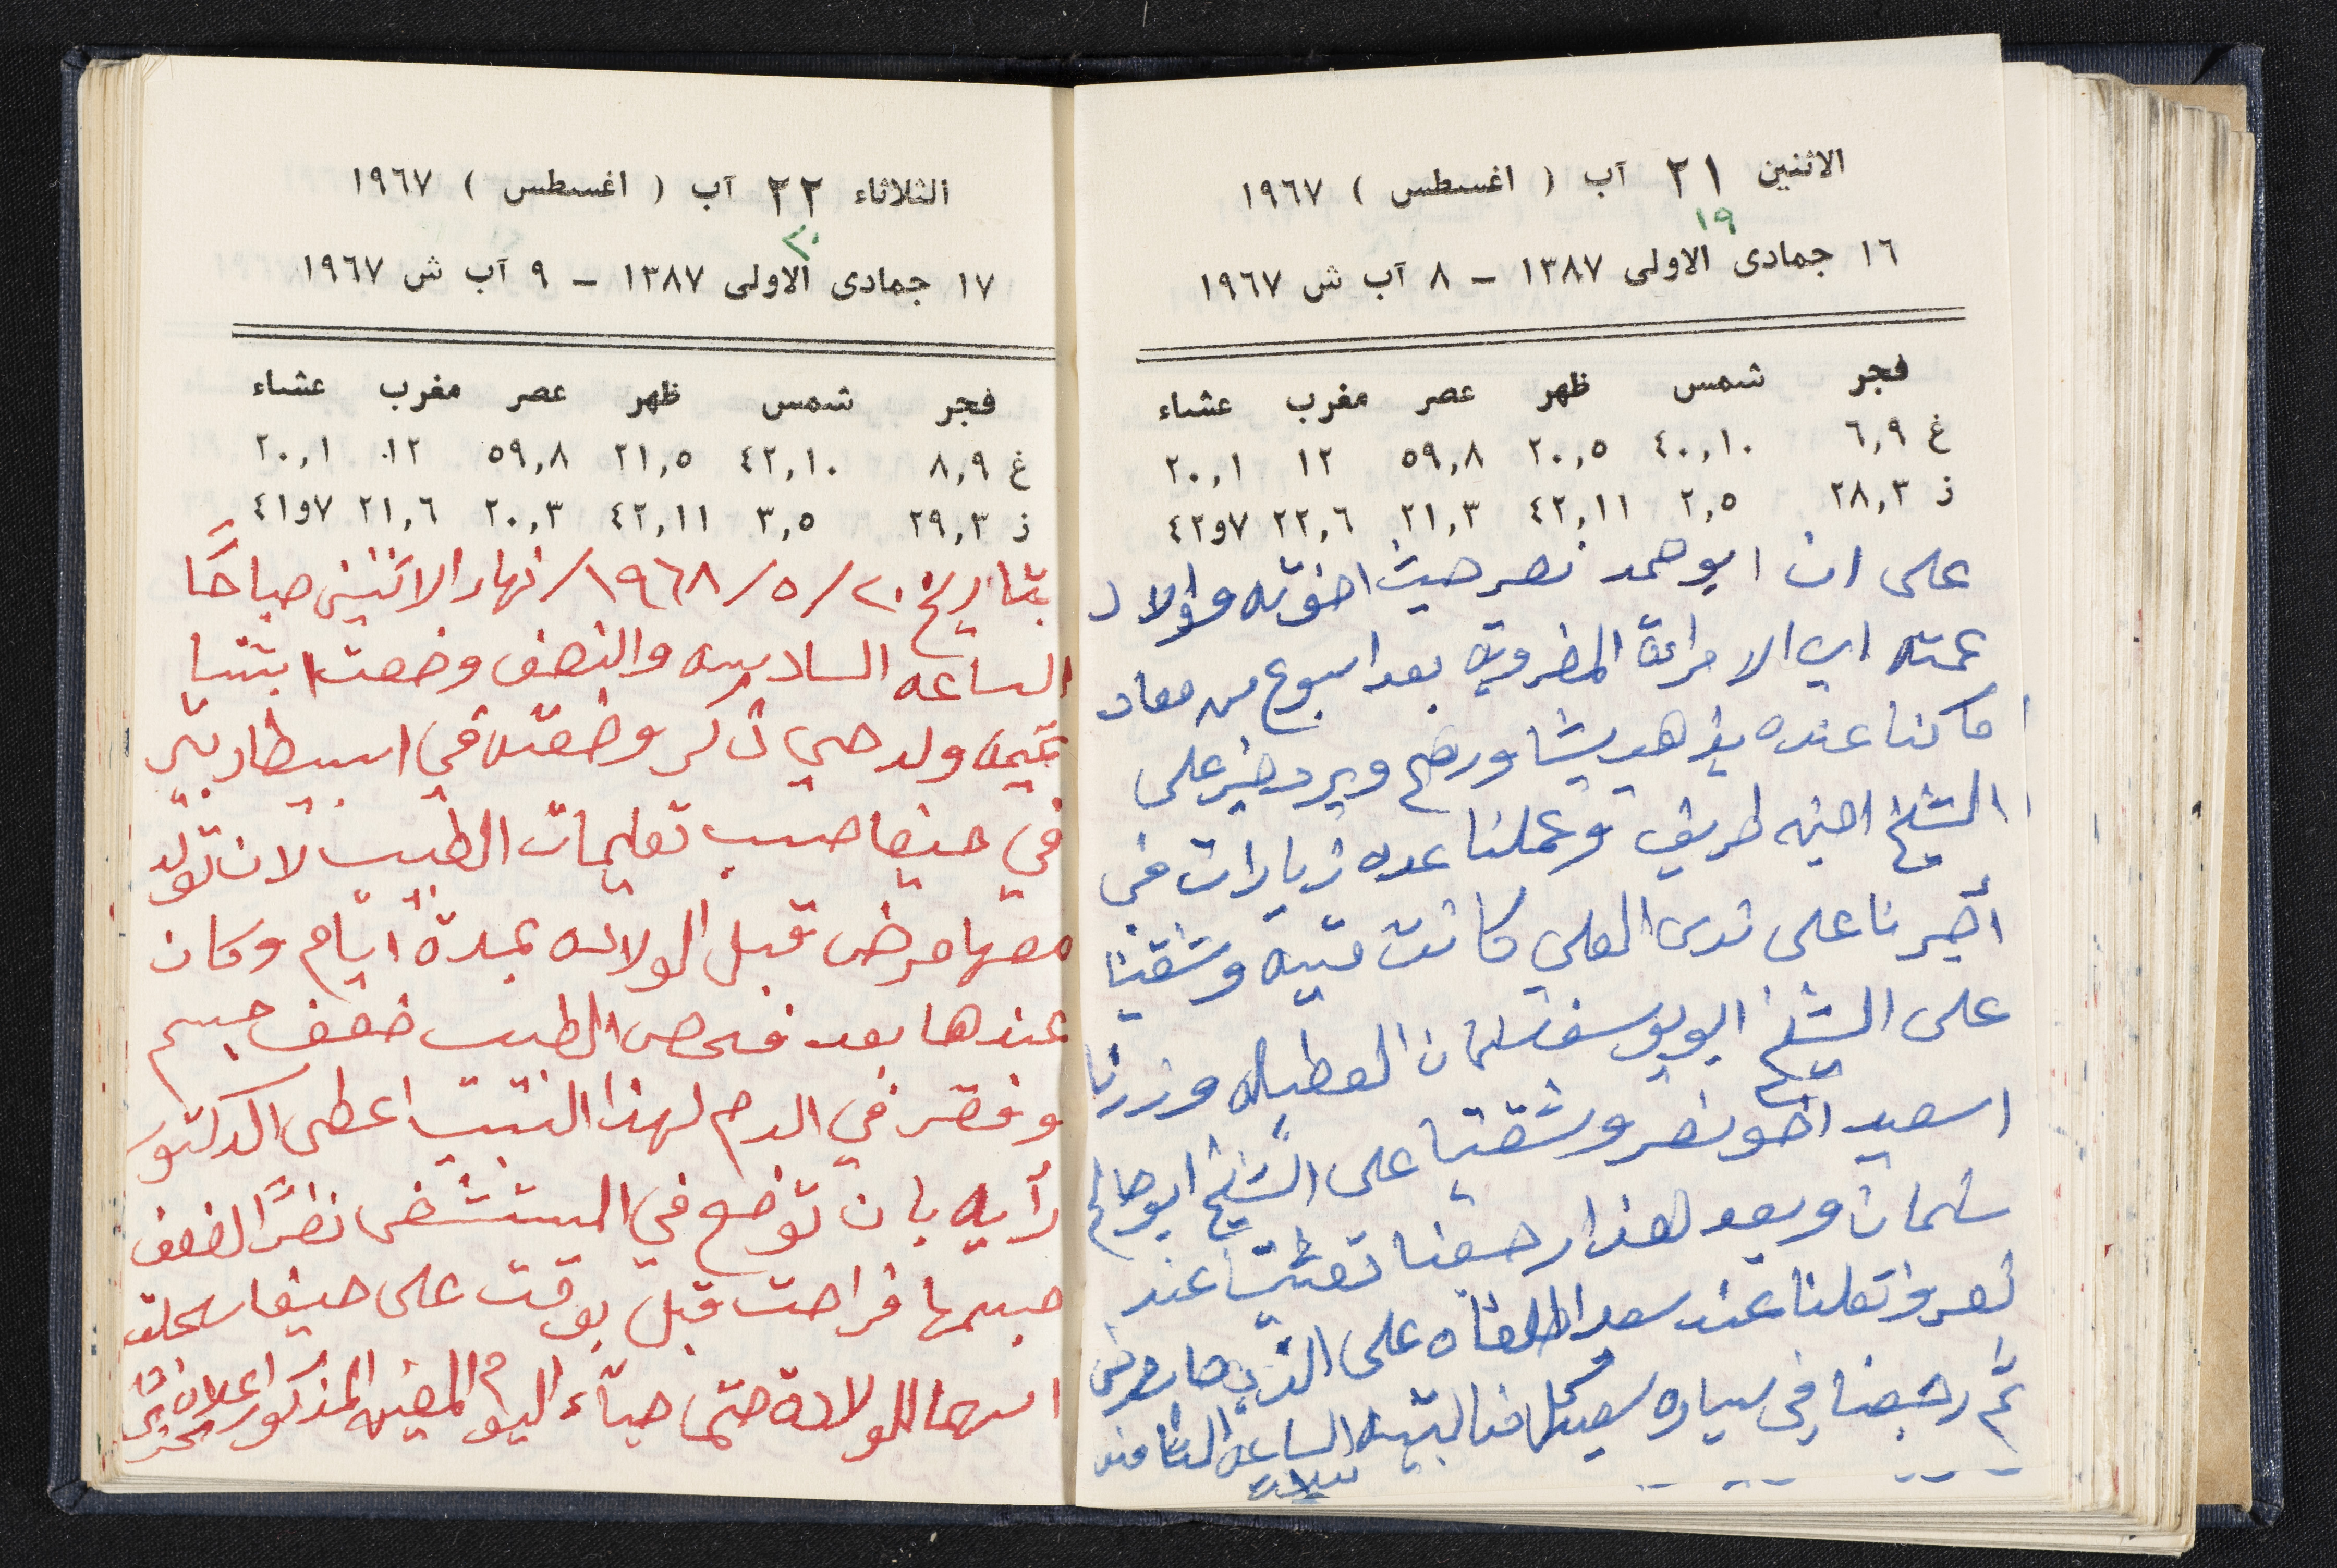 الاثنين ٢١ آب ( اغسطس ) ١٩٦٧
١٩
١٦ جمادى الاولى ١٣٨٧ – ٨ آب ش ١٩٦٧
فجر شمس ظهر عصر مغرب عشاء
غ ٦,٩ ٤٠,١٠ ٢٠,٥ ٥٩,٨ ١٢ ٢٠,١
ز ٢٨,٣ ٢,٥ ٤٢,١١ ٢١,٣ ٢٢,٦ ٤٢و٧
على ان ابو حمد نصر حيث اخوته واولاد
عمته اي الامرأة المضروبه بعد اسبوع من
ما كنا عنده يذهب يشاورهم ويرد خبر على
الشيخ امين طريف وعملنا عدة زيارات في
أجرنا على ندى العلي كانت ميته وشقينا
على الشيخ ابو يوسف سلمان العطيله وزرنا
اسعيد اخو نصر وشقينا على الشيخ ابو صالح
سلمان وبعد هذا رجعنا تعشينا عند
نصر ونقلنا عند سعد اطلعناه على الذي صار
ثم رجعنا في سياره للبيت الساعه الثامنه
الثلاثاء ٢٢ آب ( اغسطس ) ١٩٦٧
٢٠
١٧ جمادى الاولى ١٣٨٧ – ٩ آب ش ١٩٦٧
فجر شمس ظهر عصر مغرب عشاء
غ ٨,٩ ٤٢,١٠ ٢١,٥ ٥٩,٨ ١٢ ٢٠,١
ز ٢٩,٣ ٣,٥ ٤٢,١١ ٢٠,٣ ٢١,٦ ٤١و٧
بتاريخ ٢٠/٥/١٩٦٨/ نهار الاثنين صباحًا
الساعه السادسه والنصف وضعت ابنتنا
ولد حي ذكر وضعته في اسبيطار
في حيفا حسب تعليمات الطبيب لان تولد
معها مرض قبل الولاده بمدة ايام وكان
عندها بعد فحص الطبيب ضعف جسم
وفقر في الدم لهذا السبب اعطى الدكتور
رأيه بان توضع في المستشفى نضرًا لضعف
جسمها فراحت قبل بوقت على حيفا سجلت
اسمها للولادة حتى جاء اليوم المعين المذكور اعلاه